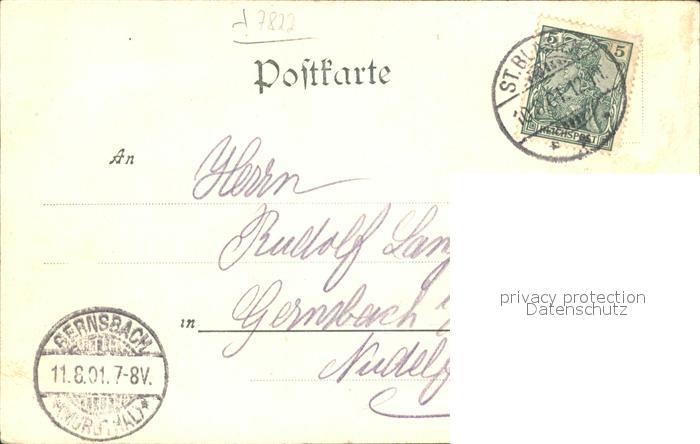 7822
Postkarte
5 5
REICHSPOST
ST.BL
An
Herrn
Rudolf Lang
in Gernsbach
Nudelf
GERNSBACH
11.8.01.7-8V.
(MURGTHAL)
privacy protection
Datenschutz